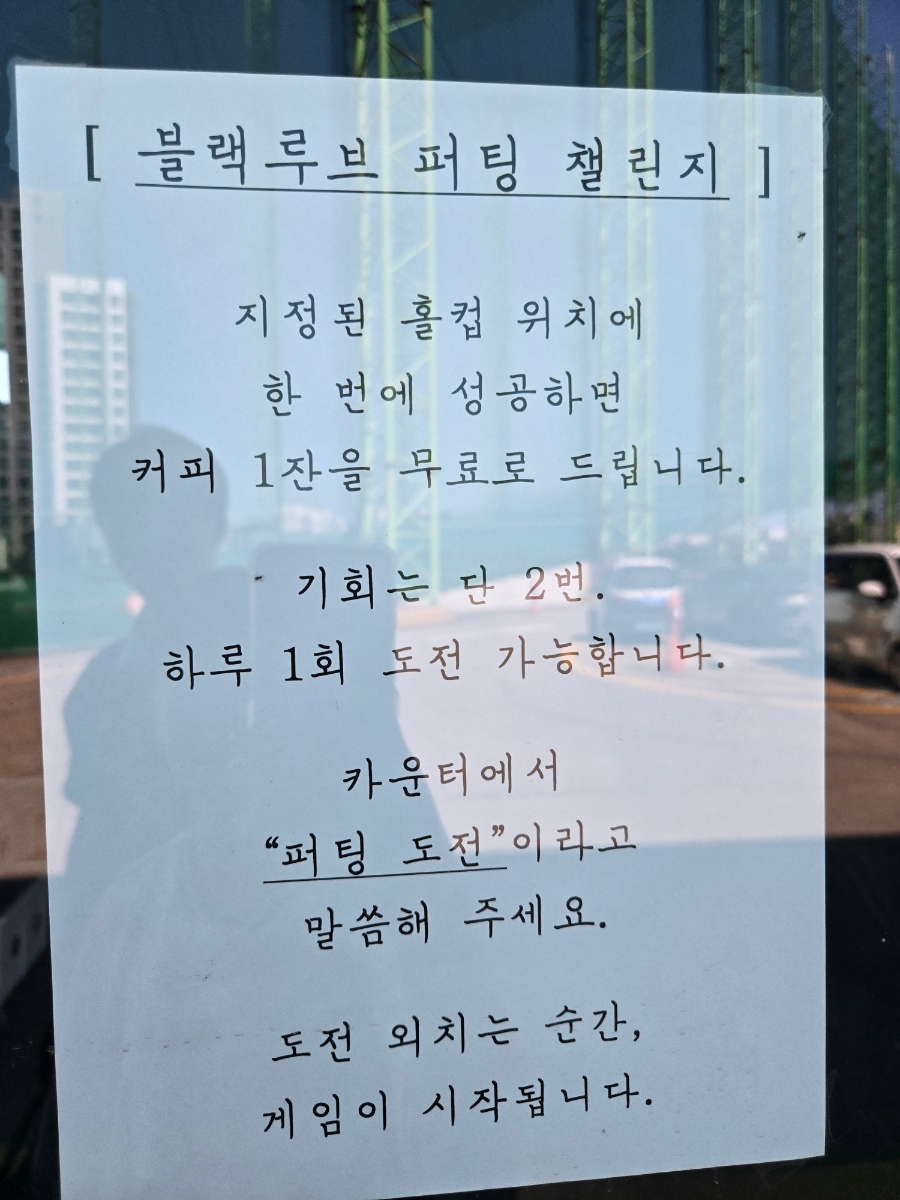 [ 블랙루브 퍼팅 챌린지 ]
지정된 홀컵 위치에
한 번에 성공하면
커피 1잔을 무료로 드립니다.
기회는 단 2번.
하루 1회 도전 가능합니다.
카운터에서
“퍼팅 도전”이라고
말씀해 주세요.
도전 외치는 순간,
게임이 시작됩니다.